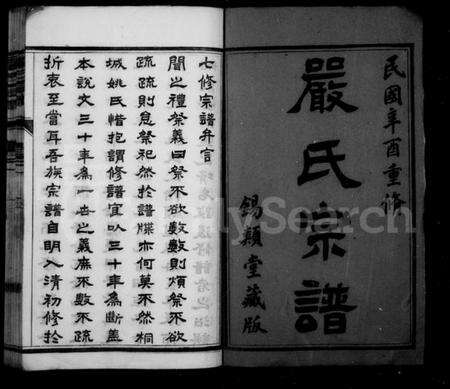 民國辛酉重修
嚴氏宗譜
錫類堂藏版
七修宗譜弁言
聞之禮祭義曰祭不欲數數則煩祭不欲
疏疏則怠祭祀然於譜牒亦何莫不然桐
城姚氏惜抱謂修譜宜以三十年為斷蓋
本說文三十年為一世之義庶不數不疏
折衷至當耳吾族宗譜自明入清初修於
FamilySearch